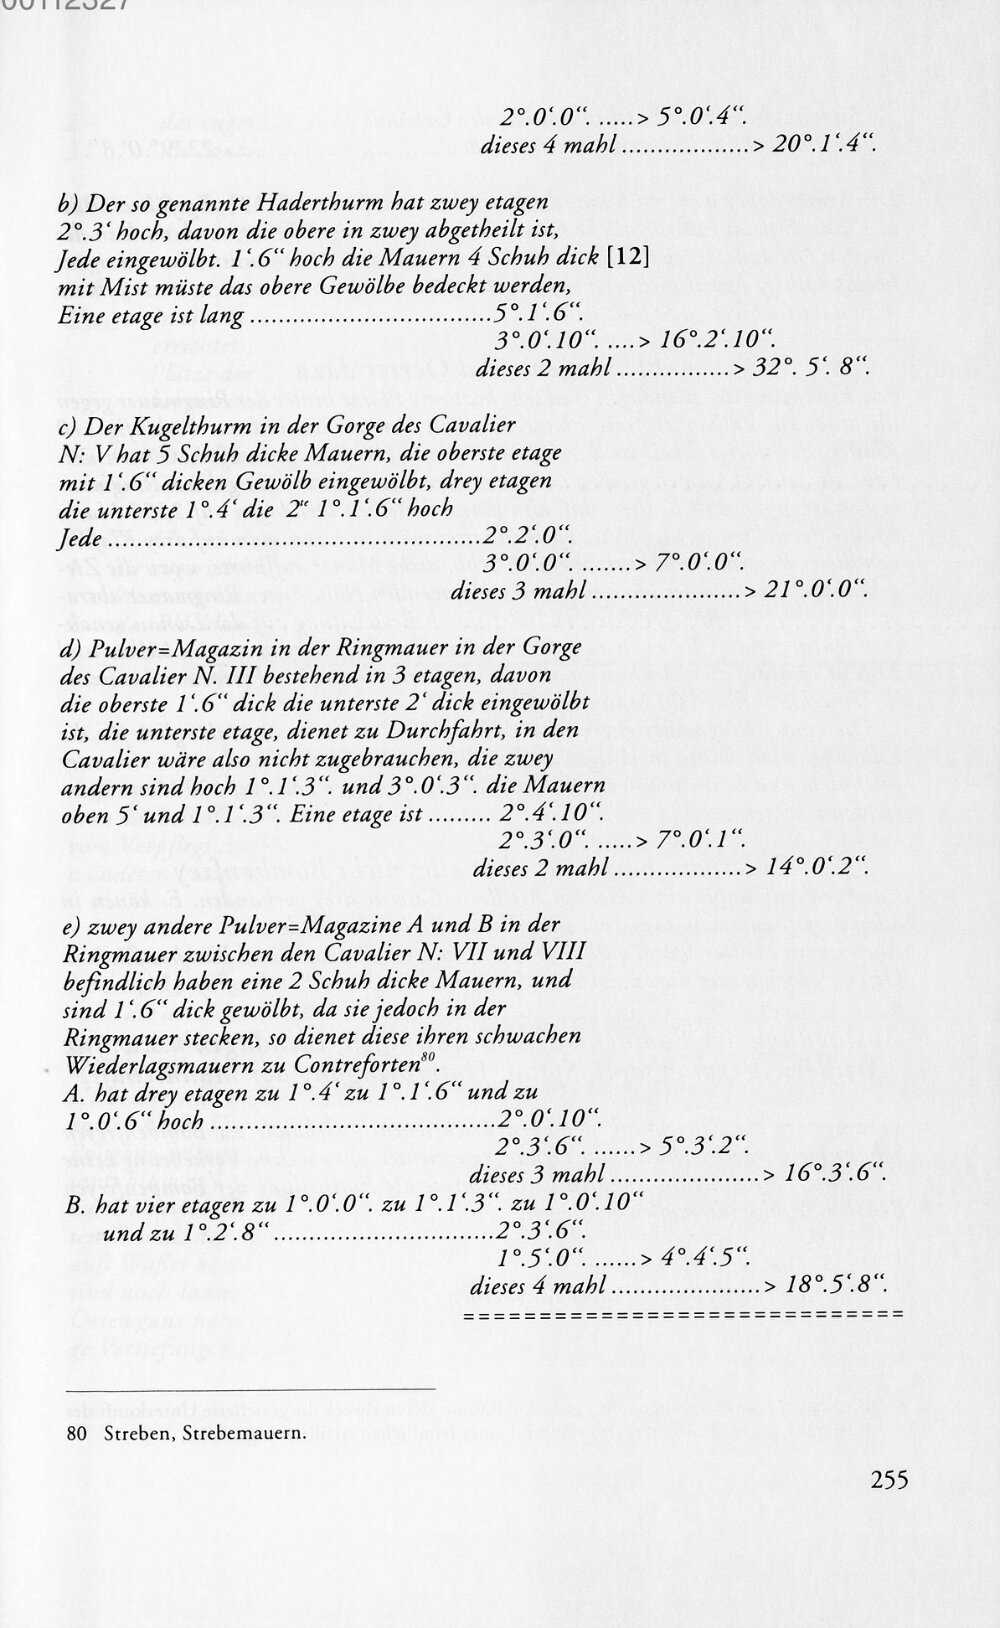 00112327
2°.0‘.0“. .....> 5°.0‘.4“.
dieses 4 mahl ..................> 20°.1‘.4“.
b) Der so genannte Haderthurm hat zwey etagen
2°.3‘ hoch, davon die obere in zwey abgetheilt ist,
Jede eingewölbt. 1‘.6“ hoch die Mauern 4 Schuh dick [12]
mit Mist müste das obere Gewölbe bedeckt werden,
Eine etage ist lang ..................................5°.1‘.6“.
3°.0‘.10“. ....> 16°.2‘.10“.
dieses 2 mahl ................> 32°. 5‘. 8“.
c) Der Kugelthurm in der Gorge des Cavalier
N: V hat 5 Schuh dicke Mauern, die oberste etage
mit 1‘.6“ dicken Gewölb eingewölbt, drey etagen
die unterste 1°.4‘ die 2“ 1°.1‘.6“ hoch
Jede ....................................................2°.2‘.0“.
3°.0‘.0“. .......> 7°.0‘.0“.
dieses 3 mahl .....................> 21°.0‘.0“.
d) Pulver=Magazin in der Ringmauer in der Gorge
des Cavalier N. III bestehend in 3 etagen, davon
die oberste 1‘.6“ dick die unterste 2‘ dick eingewölbt
ist, die unterste etage, dienet zu Durchfahrt, in den
Cavalier wäre also nicht zugebrauchen, die zwey
andern sind hoch 1°.1‘.3“. und 3°.0‘.3“. die Mauern
oben 5‘ und 1°.1‘.3“. Eine etage ist ......... 2°.4‘.10“.
2°.3‘.0“. .....> 7°.0‘.1“.
dieses 2 mahl ..................> 14°.0‘.2“.
e) zwey andere Pulver=Magazine A und B in der
Ringmauer zwischen den Cavalier N: VII und VIII
befindlich haben eine 2 Schuh dicke Mauern, und
sind 1‘.6“ dick gewölbt, da sie jedoch in der
Ringmauer stecken, so dienet diese ihren schwachen
Wiederlagsmauern zu Contreforten80.
A. hat drey etagen zu 1°.4‘ zu 1°.1‘.6“ und zu
1°.0‘.6“ hoch ........................................2°.0‘.10“.
2°.3‘.6“. ......> 5°.3‘.2“.
dieses 3 mahl .....................> 16°.3‘.6“.
B. hat vier etagen zu 1°.0‘.0“. zu 1°.1‘.3“. zu 1°.0‘.10“
und zu 1°.2‘.8“ ...............................2°.3‘.6“.
1°.5‘.0“. ......> 4°.4‘.5“.
dieses 4 mahl .....................> 18°.5‘.8“.
=============================
80 Streben, Strebemauern.
255